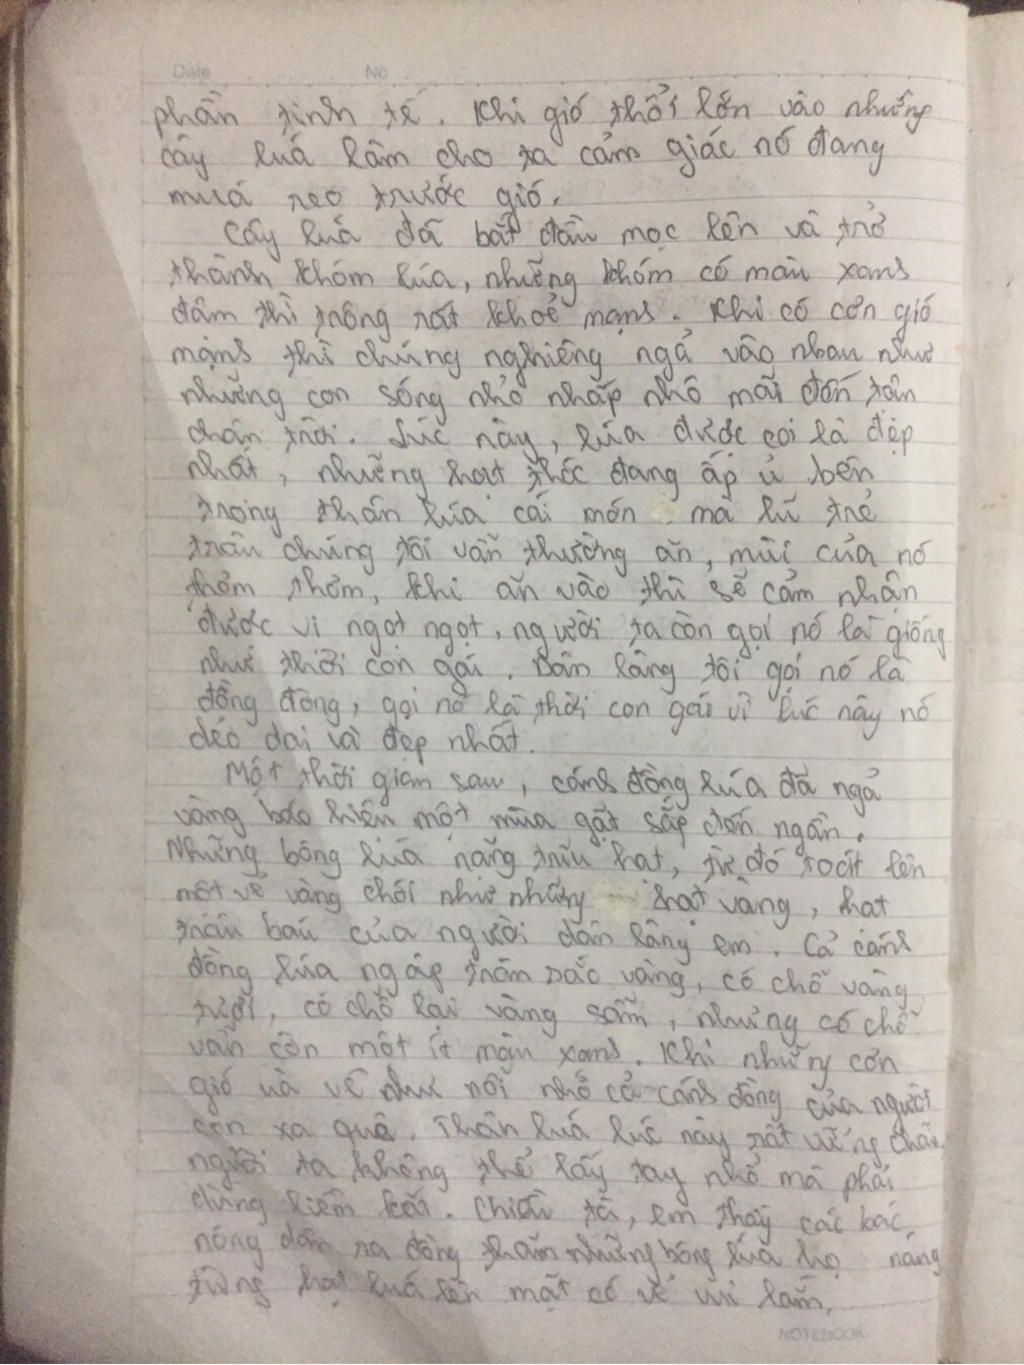 Date No
phần tinh tế. Khi gió thổi lớn vào những
cây luá làm cho ta cảm giác nó đang
muá reo trước gió.
Cây luá đã bắt đầu mọc lên và trở
thành khóm lúa, những khóm có màu xanh
đậm thì trông rất khoẻ mạnh. Khi có cơn gió
mạnh thì chúng nghiêng ngả vào nhau như
những con sóng nhỏ nhấp nhô mãi đến tận
chân trời. Lúc này, lúa được coi là đẹp
nhất, những hạt thóc đang ấp ủ bên
trong thân lúa cái món mà lũ trẻ
trâu chúng tôi vẫn thường ăn, mùi của nó
thơm thơm, khi ăn vào thì sẽ cảm nhận
được vị ngọt ngọt, người ta còn gọi nó là giống
như thời con gái. Dân làng tôi gọi nó là
đồng đòng, gọi nó là thời con gái vì lúc này nó
dẻo dai và đẹp nhất.
Một thời gian sau, cánh đồng lúa đã ngả
vàng báo hiệu một mùa gặt sắp đến ngần.
Những bông luá nặng trĩu hạt, từ đó toát lên
một vẻ vàng chói như những hạt vàng, hạt
trâu báu của người dân làng em. Cả cánh
đồng lúa ngập tràn sắc vàng, có chỗ vàng
tươi, có chỗ lại vàng sẫm, nhưng có chỗ
vẫn còn một ít màu xanh. Khi những cơn
gió ùa về như nỗi nhớ cả cánh đồng của người
con xa quê. Thân luá lúc này rất vững chắc,
người ta không thể lấy tay nhổ mà phải
dùng liềm cắt. Chiều tà, em thấy các bác
nông dân ra đồng thăm những bông lúa họ nâng
từng hạt luá lên mặt có vẻ vui lắm,
NOTEBOOK